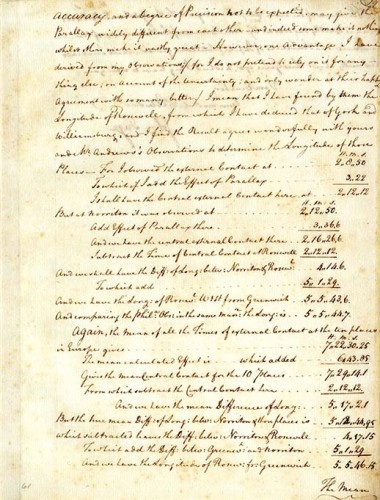 accuracy and a degree of Precision not to be expected may give the
Parallax widely different from each other and indeed some make it nothing
whilst others make it vastly great — However, one Advantage I have
derived from my Observations for I do not pretend to rely on it for any
thing else, on account of the Uncertainty, and only wonder at their happy
Agreement with so many better / I mean that I have found by them the
Longitude of Rosewell, from which I have deduced that of York and
Williamsburg, and I find the Result agrees wonderfully with yours
and Mr Andrews's Observations to determine the Longitude of those
Places — For I observed the external Contact at 2.8.50
To which if I add the Effect of Parallax 3.22
I shall have the Central external Contact here at 2.12.12
But at Norriton it was observed at 2.12.50.
Add Effect of Parallax there 3.36,6
And we have the central external Contact there 2.16.26,6
Subtract the Time of Central Contact at Rosewell 2.12.12.
And we shall have the Diff: of Long: betw: Norriton & Rosewl 4.14.6.
To which add 5.1.29
And we have the Long: of Rosewl West from Greenwich 5.5.43,6.
And comparing the Phila: Obs: in the same manr the Long: is 5.5.44,7.
Again, the Mean of all the Times of external Contact at the ten places
in Europe gives H. M. S. 7.22.30,25
The mean calculated Effect is which added
Gives the mean Central Contact for the 10 Places 7.29.14,1
From which subtract the Central Contact here 2.12.12
And we have the mean Difference of Long: 5.17.2,1
But the true mean Diff: of Long: betw: Norriton & those places is
which subtracted leaves the Diff: betw: Norriton & Rosewell 4.17.15
To which add the Diff: betw: Greenwh and Norriton 5.1.29
And we have the Longitude of Rosewl from Greenwich 5.5.46,15
The Mean